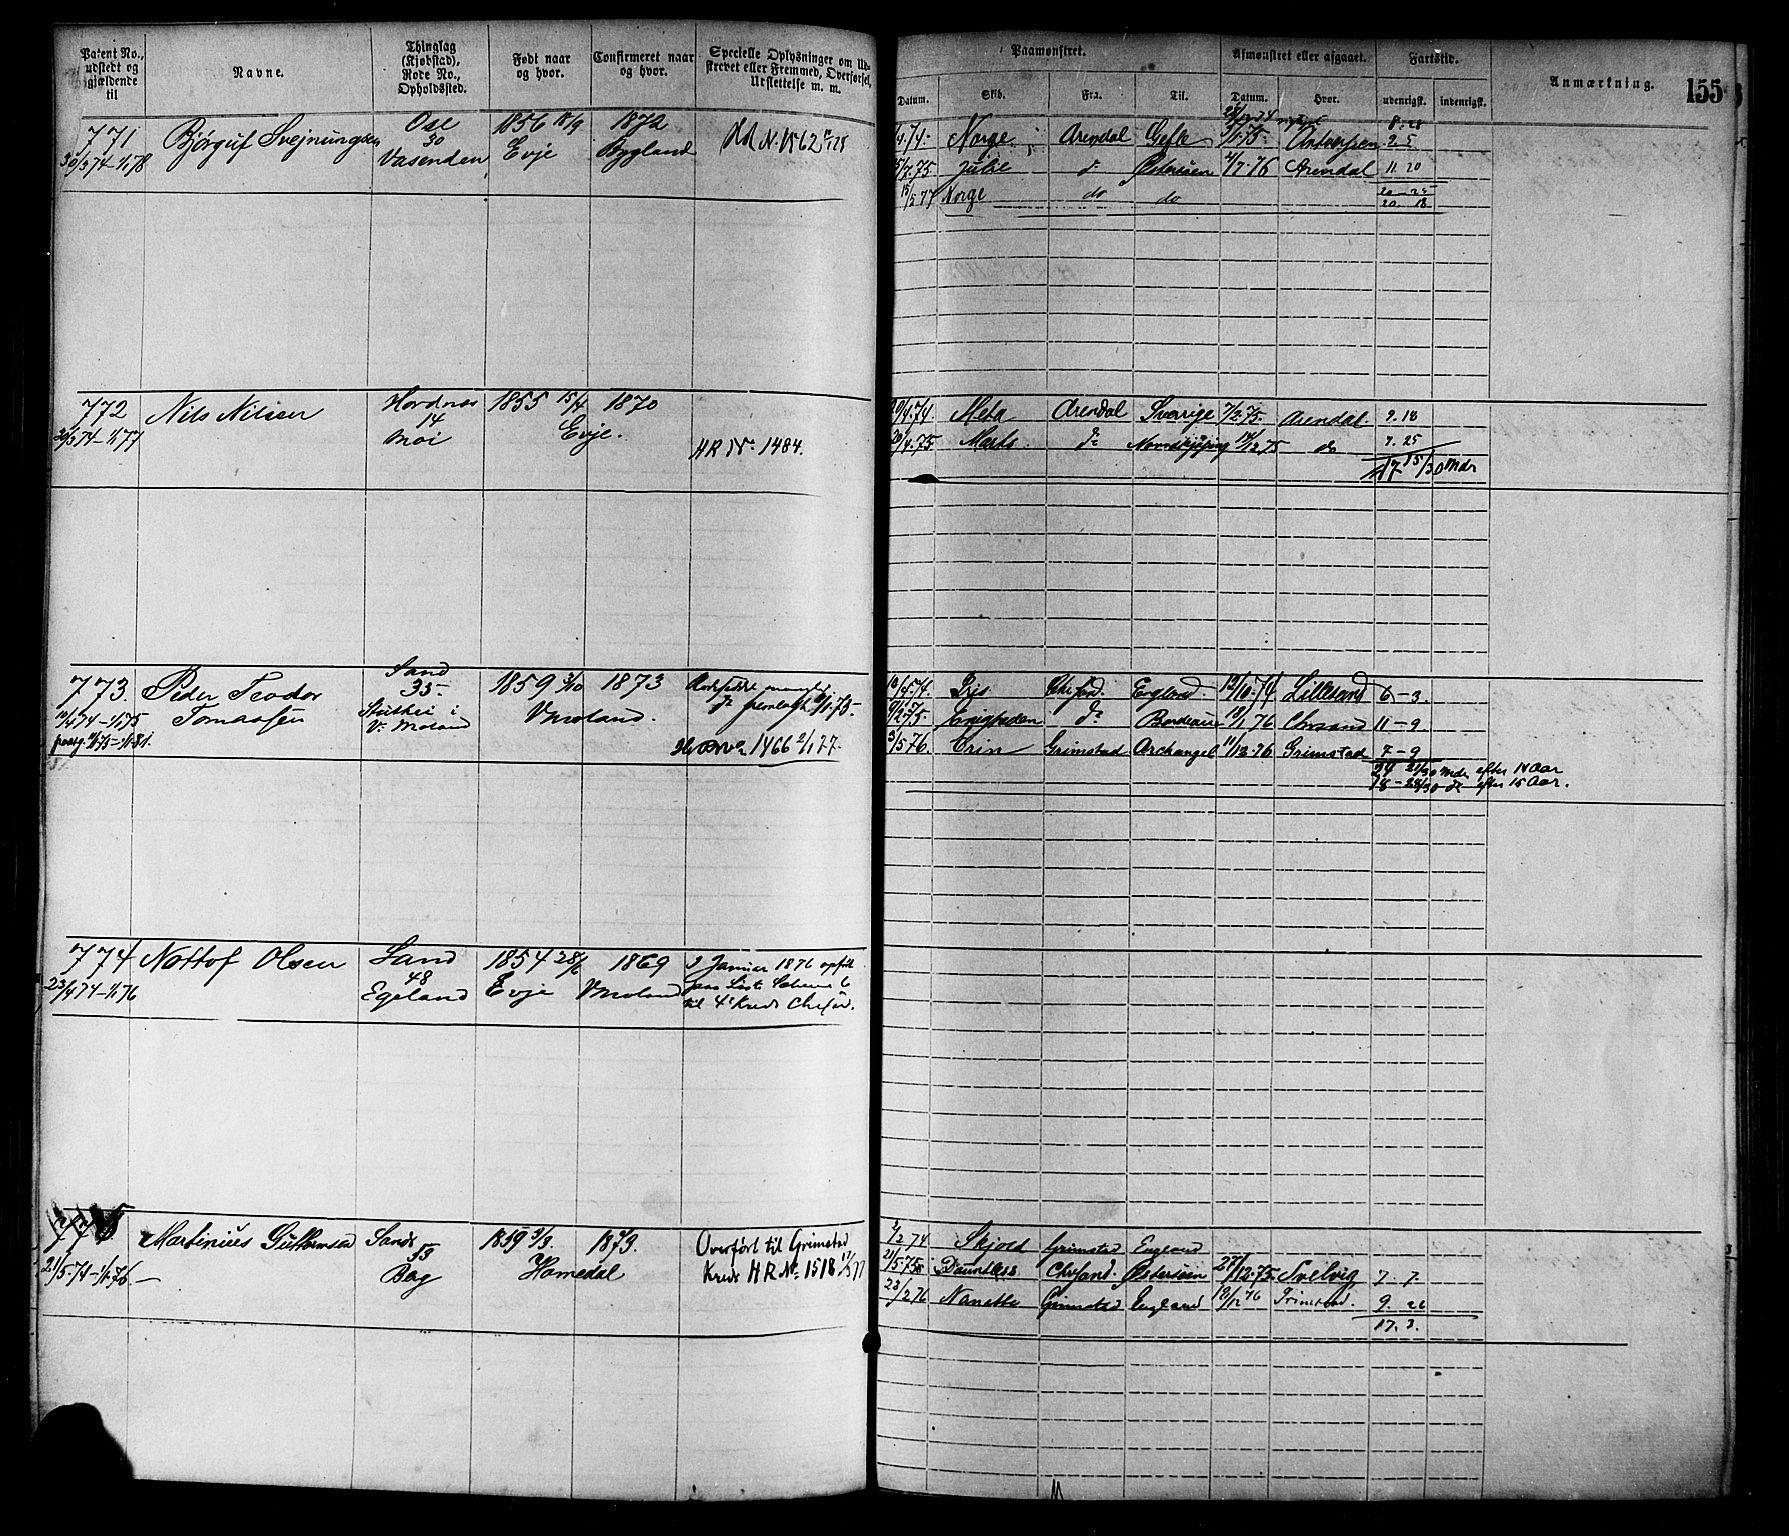 Patent No., udstedt og gjældende til
Navne.
Thinglag (Kjøbstad), Rode No., Opholdssted.
Født naar og hvor.
Confirmeret naar og hvor.
Specielle Oplysninger om Udskrevet eller Fremmed, Overførsel, Udslettelse m. m.
Paamønstret.
Datum.
Skib.
Fra.
Til.
Afmønstret eller afgaaet.
Datum.
Hvor.
Fartstid.
udenrigsk.
indenrigsk.
Anmærkning.
155
771 Bjørguf Svejnungsen Ose 1856 18/9 1872
30/3 74-1/1 78 30 Vasenden Evje Bygland HR N. 1562
4.74. Norge Arendal Gefle 3/1.75. Antwerpen 2 5
8.28
5/7.75 Julie do Østersøen 4/7.76 Arendal 11. 20
15/5 77 Norge do do 20 25
20 18
772 Nils Nilsen Hordnes 1855 15/4 1870
30/3 74-1/1 77 14 Moi Evje. HR No 1484.
20/4.74 Meta Arendal Sverrige 7/2.75 Arendal. 9. 18
20/4.75 Marts do Norrskjøping 14/12 75 do 7. 25
17 15/30 Mdr
773. Peder Teodor Sand 1859 3/10 1873
10/4 74-1/1 75 Tomassen 35. V. Moland V Moland.
HR No 1466 2/1 77.
10/4.74. Iris Chrsand. England. 12/10.74 Lillesand 6-3.
9/2.75. do Bordeaux 18/1 76 Chrsand 11-9.
3/5 76. Trin Grimstad Archangel 11/12.76 Grimstad 7-9
24 21/30 Mdr efter 14 Aar
18-28/30 do efter 15 Aar.
774 Nottof Olsen Sand 1854 28/6 1869 3 Januar 1876
23/4 74-1/1 76 48 Egeland Evje V Moland
til 4de Kreds
775 Martinius Guttormsen Sand 1859 3/3 1873. Overført til Grimstad
21/5.74-1/1.76. 53 Bag Homedal Kreds HR No. 1518 17/3 77
2/2 74 Skjold Grimstad England
21/5.75 Dauntless Chrsand. Østersøen 27/12.75. Svelvig 7. 7.
22/2 76 Nanette Grimstad England 12/12 76 Grimstad. 9. 26
17. 3.